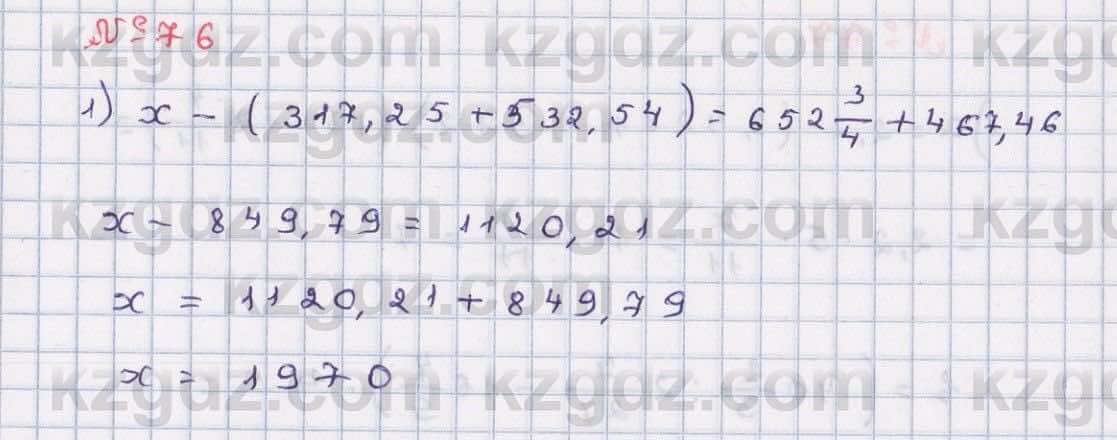 № 76
1) x - (317,25 + 532,54) = 652 3/4 + 467,46
x - 849,79 = 1120,21
x = 1120,21 + 849,79
x = 1970
kzgdz.com